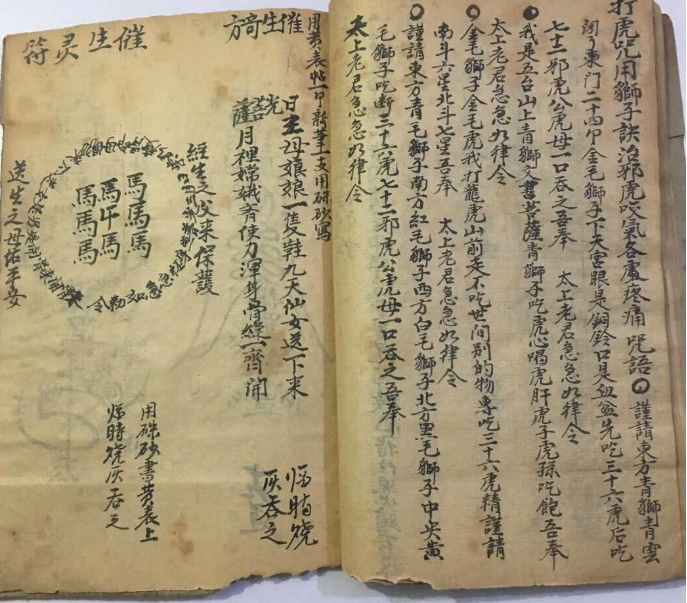 打虎咒用獅子訣治邪虎咬氣各處疼痛 咒語○謹請東方青獅青雲
闭了東门二十四卬金毛獅子下天宮眼是銅鈴口是血盆先吃三十六虎后吃
七十二邪虎公虎母一口吞之吾奉 太上老君急急如律令
○我是五台山上青獅文書菩薩青獅子吃虎心喝虎肝虎子虎孫吃飽吾奉
太上老君急急如律令
○金毛獅子金毛虎我打龍虎山前走不吃世间别的物專吃三十六虎精謹請
南斗六星北斗七星吾奉 太上老君急急如律令
○謹請東方青毛獅子南方紅毛獅子西方白毛獅子北方黑毛獅子中央黄
毛獅子吃断三十六虎七十二邪虎公虎母一口吞之吾奉
太上老君急急如律令
催生奇方
用黄表帖一卬新筆一支用硃砂寫
咒語曰
王母娘娘一隻鞋九天仙女送下来
月裡嫦娥齊使力渾身骨縫一齊開
臨時燒
灰吞之
催生灵符
經生之父来保護
馬馬馬
馬午馬
馬馬馬
急急如勅令
送生之母佑平安
用硃砂書黄表上
臨時燒灰吞之